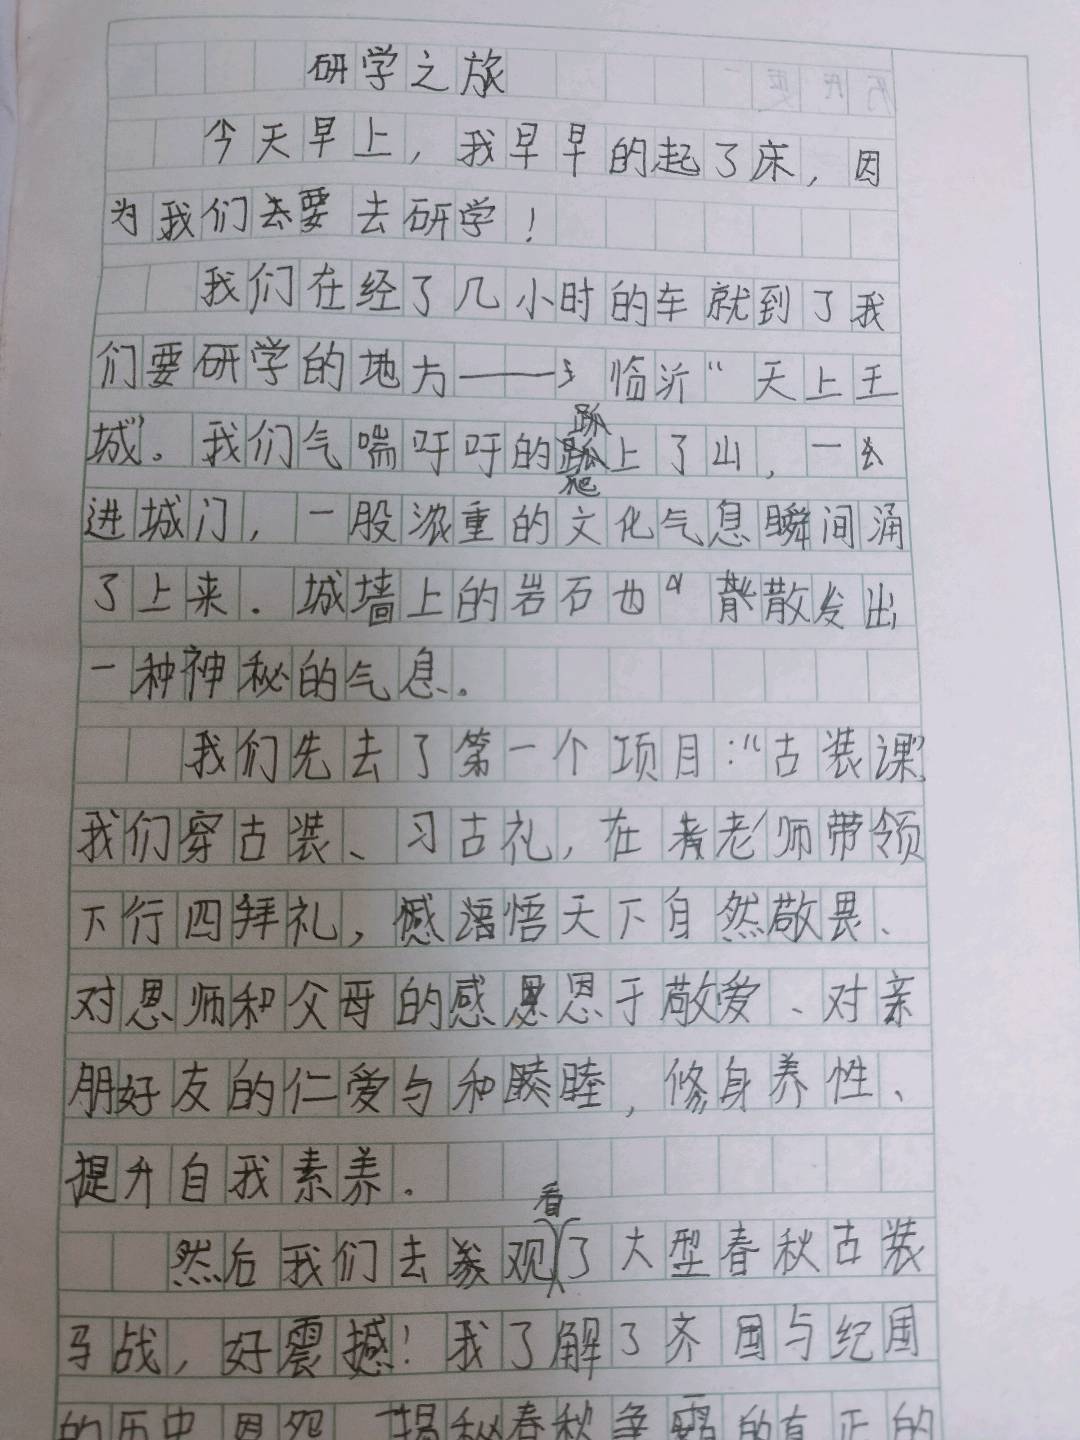 研学之旅
今天早上，我早早的起了床，因
为我们去要去研学！
我们在经了几小时的车就到了我
们要研学的地方——临沂“天上王
城”。我们气喘吁吁的爬上了山，一
进城门，一股浓重的文化气息瞬间涌
了上来．城墙上的岩石也散发出
一种神秘的气息．
我们先去了第一个项目：“古装课”
我们穿古装、习古礼，在老师带领
下行四拜礼，感悟天下自然敬畏、
对恩师和父母的感恩于敬爱、对亲
朋好友的仁爱与和睦，修身养性、
提升自我素养．
看
然后我们去参观了大型春秋古装
马战，好震撼！我了解了齐国与纪国
的历史恩怨 揭秘春秋争霸的真正的